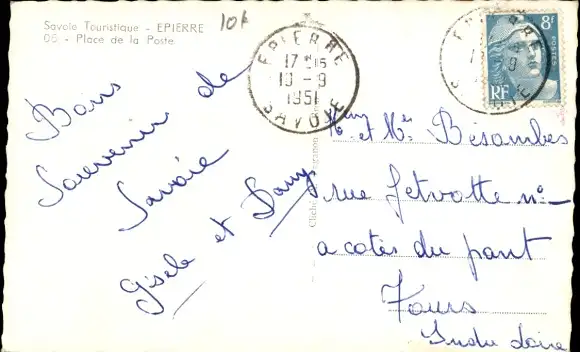 Savoie Touristique - EPIERRE
05 - Place de la Poste
10f
EPIERRE
17 H 15
10 - 9
1951
SAVOIE
8F
POSTES
RF
Bons
Souvenirs de
Savoie
Gisèle et Dany
et Mr Bésombes
rue Jetvotte no-
a cotés du pont
Tours
Indre Loire